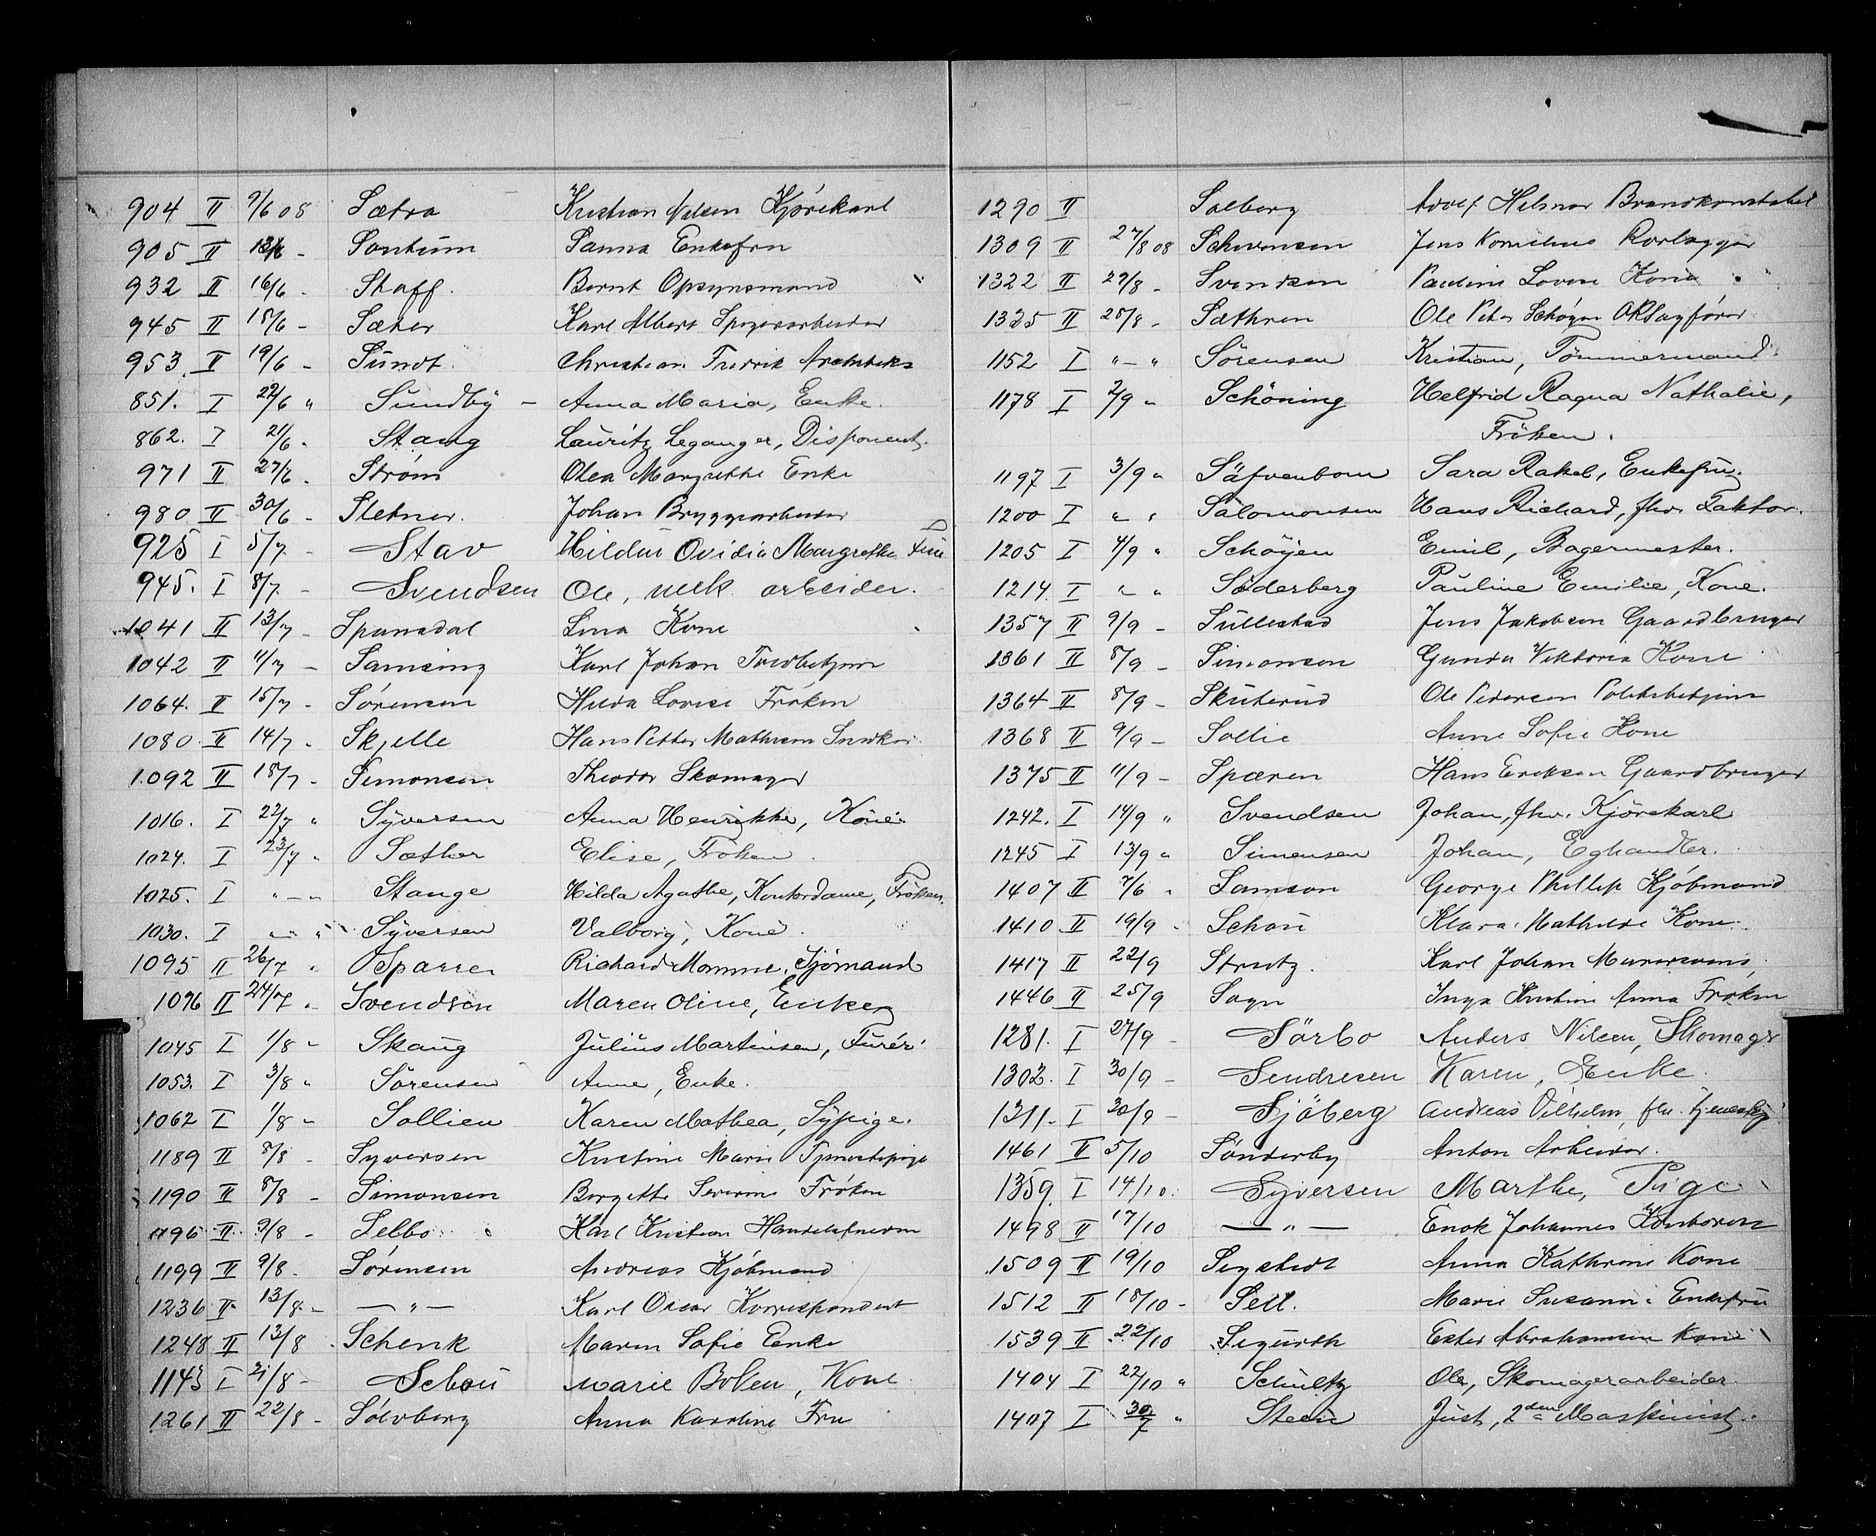 904 II 9/6 08 Sætra Kristian Nelsen Kjørekarl
905 II 13/6 - Sontum Sanna Enkefru
932 II 16/6 - Staff. Bernt Opsynsmand
945 II 18/6 - Sæter Karl Albert
953. II 19/6 - Sundt. Christian Fredrik Arkitekt
851. I 22/6 " Sundby - Anna Maria, Enke.
862. I 21/6 . Stang Lauritz Leganger, Disponent.
971 II 27/6 . Strøm Olea Margrethe Enke
980 II 30/6 - Sletner. Johan Bryggearbeider
925 I 5/7 - Stav Hildur Ovidia Margrethe Frue
945. I 8/7 - Svendsen Ole, mek. arbeider.
1041 II 13/7 - Spansdal Lina Kone
1042 II 11/7 - Samsing Karl Johan
1064. II 15/7 - Sørensen Hilda Lovise Frøken
1080. II 14/7 - Skjelle Hans Petter Mathisen Snedker
1092 II 18/7 - Simonsen Theodor Skomager
1016. I 22/7 " Syversen Anna Henrikke, Kone.
1024. I 23/7 " Sæther Elise, Frøken.
1025. I " - " Stange Hilda Agathe, Kontordame, Frøken.
1030. I " " " Syversen Valborg, Kone.
1095 II 26/7 " Sparre Richard Momme, Sjømand
1096 II 24/7 " Svendsen Maren Oline, Enke
1045 I 1/8 " Skaug Julius Martinsen, Furér
1053. I 3/8 " Sørensen Anne, Enke.
1062 I 1/8 " Sollien Karen Mathea, Sypige.
1189 II 8/8 - Syversen Kristine Marie Tjenestepige
1190 II 8/8 - Simonsen Borgette Severine Frøken
1196 II 9/8 - Selbo Karl Kristian
1199 II 9/8 - Sørensen Andreas Kjøbmand
1236 II 13/8 - — " — Karl Oscar Korrespondent
1248 II 13/8 . Schenk Maren Sofie Enke
1143 I 21/8 - Schou Marie Bolen, Kone
1261 II 22/8 - Sølvberg Anna Karoline Fru
1290 II Solberg Adolf Hilmar Brandkonstabel
1309 II 27/8 08 Schwensen Jens Kornelius Rorlægger
1322 II 29/8 - Svendsen Pauline Lovise Kone
1325 II 28/8 - Sæthren Ole Peter Schøyen
1152 I " - " Sörensen Kristian, Tømmermand.
1178 I 2/9 " Schöning Helfrid Ragna Nathalie,
Fröken.
1197 I 3/9 " Säfvenbom Sara Rakel, Enkefru.
1200 I " " Salomonsen Hans Richard, fhv. Faktor.
1205 I 4/9 " Schøyen Emil, Bagermester.
1214 I " " Söderberg Pauline Emilie, Kone.
1357 II 9/9 - Sullestad Jens Jakobsen Gaardbruger
1361 II 8/9 - Simonsen Gunda Viktoria Kone
1364 II 8/9 - Skuterud Ole Pedersen Politibetjent
1368 II 9/9 - Sollie Anne Sofie Kone
1375 II 11/9 - Spæren Hans Eriksen Gaardbruger
1242. I 14/9 " Svendsen Johan, fhv. Kjørekarl
1245 I 13/9 " Simensen Johan, Eghandler.
1407 II 7/6 . Samson George Phillip Kjøbmand
1410 II 19/9 . Schou Klara Mathilde Kone.
1417 II 22/9 Strutz. Karl Johan Murersvend
1446 II 25/9 Sogn Inga Kristine Anna Frøken
1281. I 27/9 - Sörbo Anders Nilsen, Skomager
1302. I 30/9 - Sendresen Karen, Enke.
1311. I 30/9 - Sjöberg Andreas Vilhelm, fhv.
1461 II 5/10 Sønderby Anton Arbeider.
1359 I 14/10. Syversen Marthe, Pige
1498 II 17/10 — " — Enok Johannes
1509 II 19/10 Segstedt Anna Kathrine Kone
1512 II 18/10 - Sell. Marie Susanne Enkefru
1539 II 22/10 Sigurth Ester Abrahamsen Kone
1404 I 22/10 " Schultz Ole, Skomagerarbeider
1407 I 30/7 " Steen Just, 2den Maskinist.